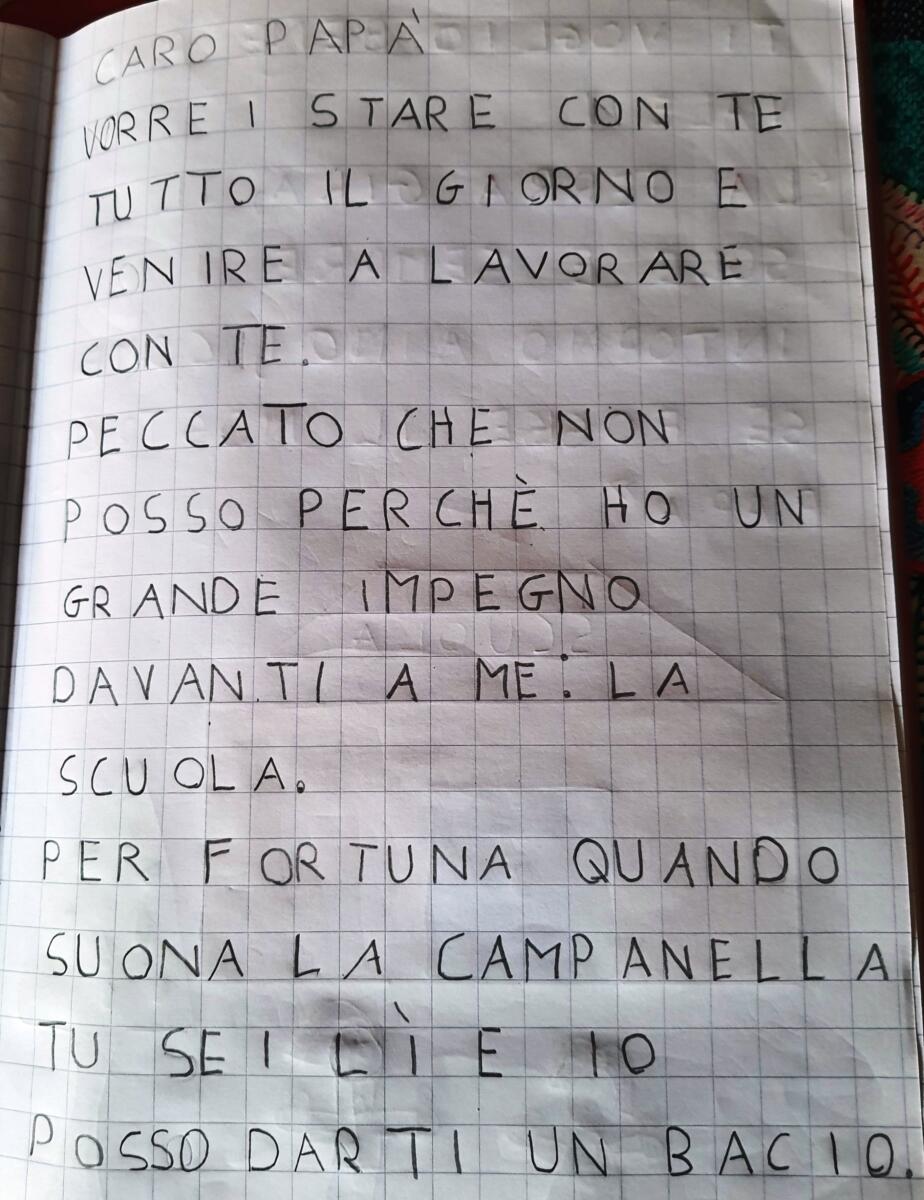 CARO PAPÀ
VORREI STARE CON TE
TUTTO IL GIORNO E
VENIRE A LAVORARE
CON TE.
PECCATO CHE NON
POSSO PERCHÈ HO UN
GRANDE IMPEGNO
DAVANTI A ME: LA
SCUOLA.
PER FORTUNA QUANDO
SUONA LA CAMPANELLA
TU SEI LÌ E IO
POSSO DARTI UN BACIO.